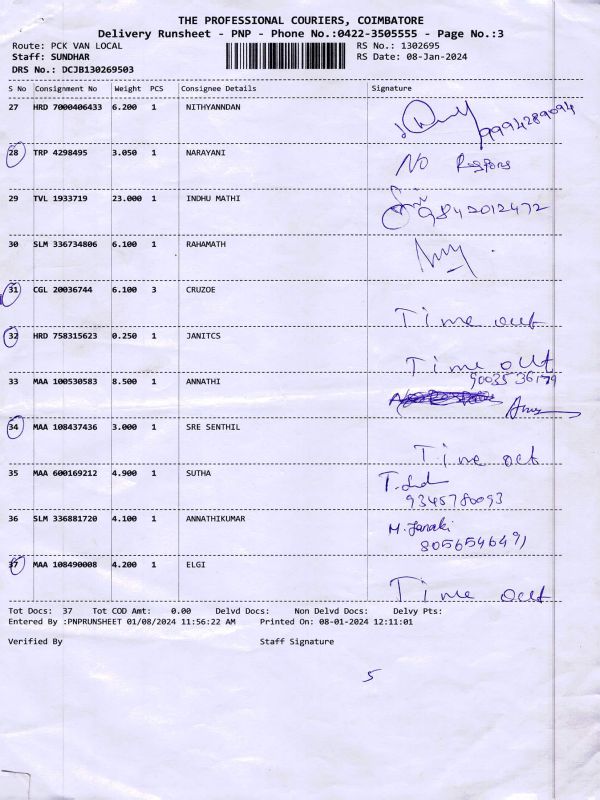 THE PROFESSIONAL COURIERS, COIMBATORE
Delivery Runsheet - PNP - Phone No.:0422-3505555 - Page No.:3
Route: PCK VAN LOCAL RS No.: 1302695
Staff: SUNDHAR RS Date: 08-Jan-2024
DRS No.: DCJB130269503
S No Consignment No Weight PCS Consignee Details Signature
27 HRD 7000406433 6.200 1 NITHYANNDAN
9994289094
28 TRP 4298495 3.050 1 NARAYANI
No Respons
29 TVL 1933719 23.000 1 INDHU MATHI
9842012472
30 SLM 336734806 6.100 1 RAHAMATH
31 CGL 20036744 6.100 3 CRUZOE
Time out
32 HRD 758315623 0.250 1 JANITCS
Time out
33 MAA 100530583 8.500 1 ANNATHI
9003536179
34 MAA 108437436 3.000 1 SRE SENTHIL
Time oct
35 MAA 600169212 4.900 1 SUTHA
9345780093
36 SLM 336881720 4.100 1 ANNATHIKUMAR
M. Janaki
8056546491
37 MAA 108490008 4.200 1 ELGI
Time out
Tot Docs: 37 Tot COD Amt: 0.00 Delvd Docs: Non Delvd Docs: Delvy Pts:
Entered By :PNPRUNSHEET 01/08/2024 11:56:22 AM Printed On: 08-01-2024 12:11:01
Verified By Staff Signature
5